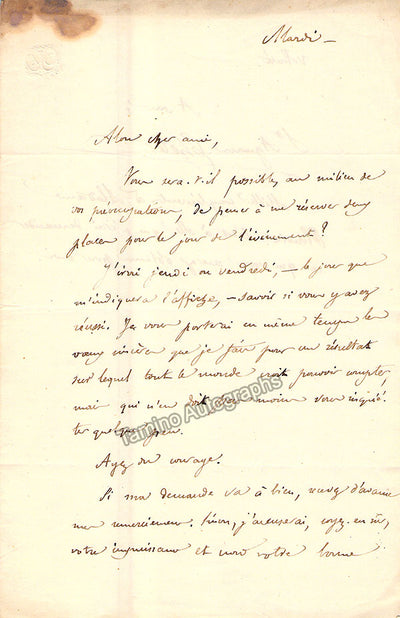 Mardi –
Mon cher ami,
Vous sera-t-il possible, au milieu de
vos préoccupations, de penser à me réserver deux
places pour le jour de l'événement?
J'irai jeudi ou vendredi, – le jour que
m'indiquera l'affiche, – savoir si vous y avez
réussi. Je vous porterai en même temps les
vœux sincères que je fais pour un résultat
sur lequel tout le monde croit pouvoir compter,
mais qui n'en doit pas moins vous inquié-
ter quelque peu.
Tamino Autographs
Ayez du courage.
Si ma demande va à bien, recevez d'avance
mes remerciements. Sinon, j'accuserai, soyez-en sûr,
votre impuissance et non votre bonne